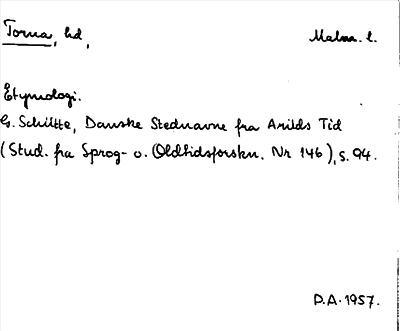 Torna, hd, Malm. l.
Etymologi.
G. Schütte, Danske Stednavne fra Arilds Tid
(Stud. fra Sprog- o. Oldtidsforskn. Nr 146), s. 94.
D.A. 1957.